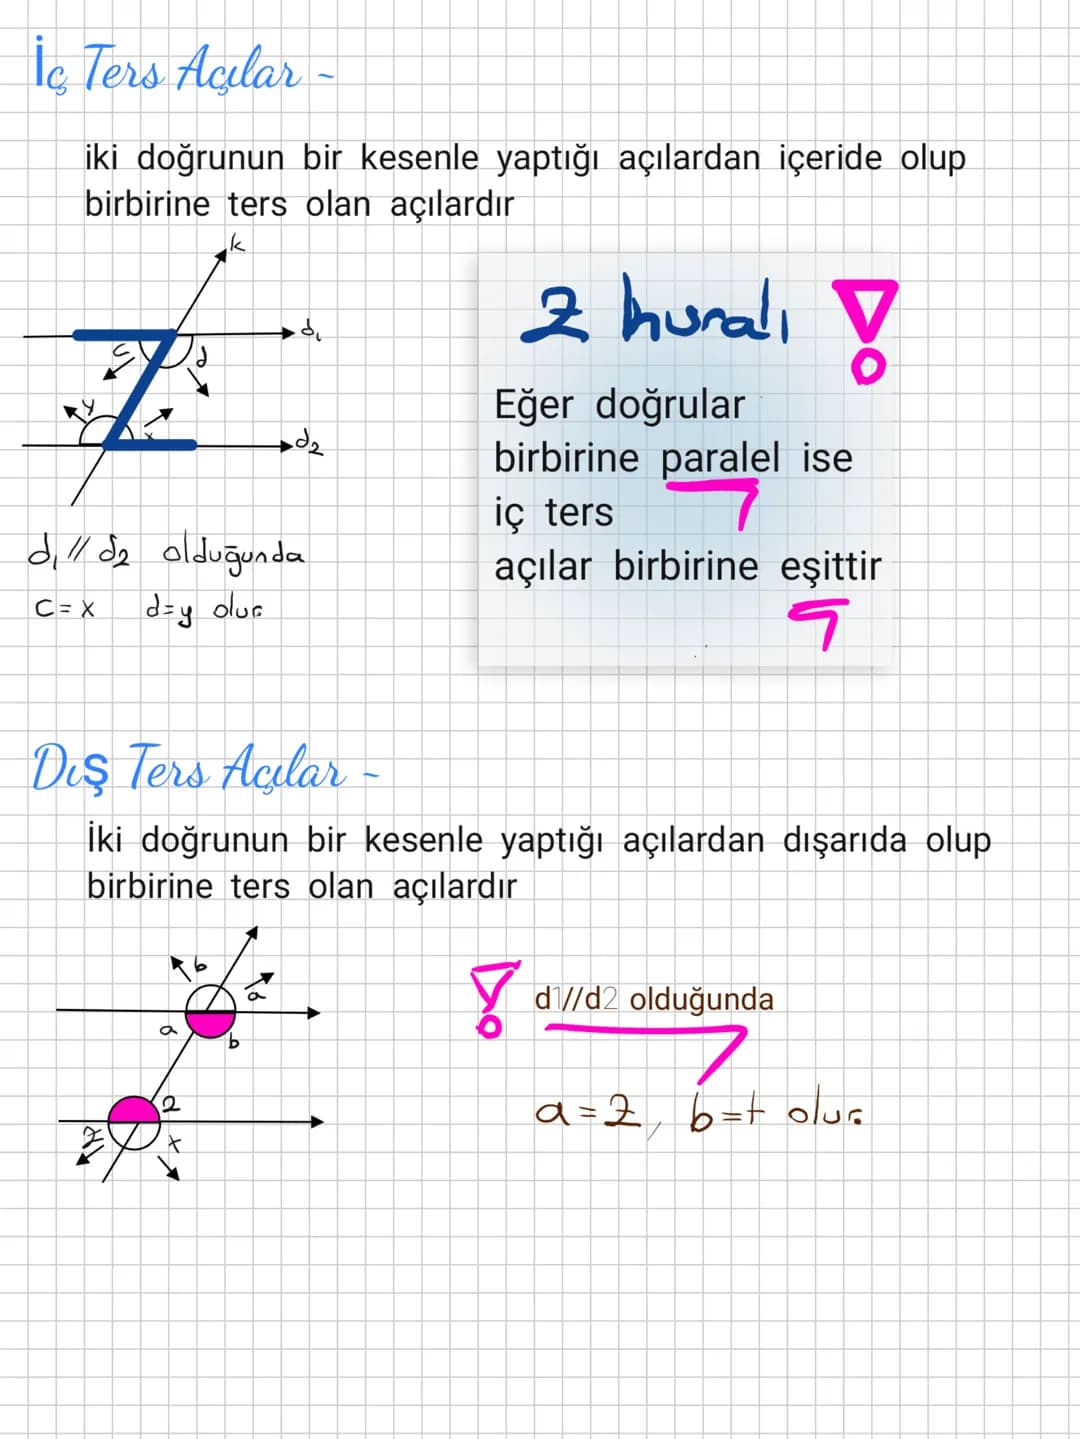 İç Ters Açılar -
iki doğrunun bir kesenle yaptığı açılardan içeride olup
birbirine ters olan açılardır
k
d₁
c
d
y
x
d₂
d₁ // d₂ olduğunda
c = x d=y olur
Z kuralı !
Eğer doğrular
birbirine paralel ise
iç ters
açılar birbirine eşittir
Dış Ters Açılar -
İki doğrunun bir kesenle yaptığı açılardan dışarıda olup
birbirine ters olan açılardır
b
a
a
b
z
z
! d1//d2 olduğunda
a = z, b=t olur